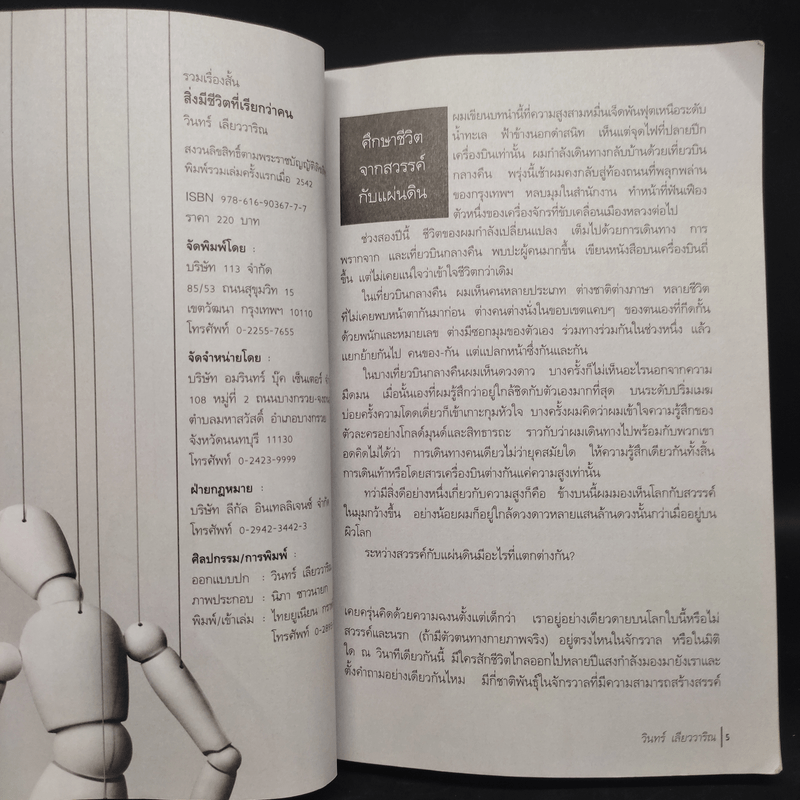 รวมเรื่องสั้น
สิ่งมีชีวิตที่เรียกว่าคน
วินทร์ เลียววาริณ
สงวนลิขสิทธิ์ตามพระราชบัญญัติ
พิมพ์รวมเล่มครั้งแรกเมื่อ 2542
ISBN 978-616-90367-7-7
ราคา 220 บาท
จัดพิมพ์โดย :
บริษัท 113 จำกัด
85/53 ถนนสุขุมวิท 15
เขตวัฒนา กรุงเทพฯ 10110
โทรศัพท์ 0-2255-7655
จัดจำหน่ายโดย :
บริษัท อมรินทร์ บุ๊ค เซ็นเตอร์
108 หมู่ที่ 2 ถนนบางกรวย-
ตำบลมหาสวัสดิ์ อำเภอบางกรวย
จังหวัดนนทบุรี 11130
โทรศัพท์ 0-2423-9999
ฝ่ายกฎหมาย :
บริษัท ลีกัล อินเทลลิเจนซ์ จำกัด
โทรศัพท์ 0-2942-3442-3
ศิลปกรรม/การพิมพ์ :
ออกแบบปก : วินทร์ เลียววาริณ
ภาพประกอบ : นิภา ชาวนายก
พิมพ์/เข้าเล่ม : ไทยยูเนียน
โทรศัพท์
ศึกษาชีวิต
จากสวรรค์
กับแผ่นดิน
ผมเขียนบทนำนี้ที่ความสูงสามหมื่นเจ็ดพันฟุตเหนือระดับ
น้ำทะเล ฟ้าข้างนอกดำสนิท เห็นแต่จุดไฟที่ปลายปีก
เครื่องบินเท่านั้น ผมกำลังเดินทางกลับบ้านด้วยเที่ยวบิน
กลางคืน พรุ่งนี้เช้าผมคงกลับสู่ท้องถนนที่พลุกพล่าน
ของกรุงเทพฯ หลบมุมในสำนักงาน ทำหน้าที่ฟันเฟือง
ตัวหนึ่งของเครื่องจักรที่ขับเคลื่อนเมืองหลวงต่อไป
ช่วงสองปีนี้ ชีวิตของผมกำลังเปลี่ยนแปลง เต็มไปด้วยการเดินทาง การ
พรากจาก และเที่ยวบินกลางคืน พบปะผู้คนมากขึ้น เขียนหนังสือบนเครื่องบินถี่
ขึ้น แต่ไม่เคยแน่ใจว่าเข้าใจชีวิตกว่าเดิม
ในเที่ยวบินกลางคืน ผมเห็นคนหลายประเภท ต่างชาติต่างภาษา หลายชีวิต
ที่ไม่เคยพบหน้าตากันมาก่อน ต่างคนต่างนั่งในขอบเขตแคบๆ ของตนเองที่กีดกั้น
ด้วยพนักและหมายเลข ต่างมีซอกมุมของตัวเอง ร่วมทางร่วมกันในช่วงหนึ่ง แล้ว
แยกย้ายกันไป คนของ-กัน แต่แปลกหน้าซึ่งกันและกัน
ในบางเที่ยวบินกลางคืนผมเห็นดวงดาว บางครั้งก็ไม่เห็นอะไรนอกจากความ
มืดมน เมื่อนั้นเองที่ผมรู้สึกว่าอยู่ใกล้ชิดกับตัวเองมากที่สุด บนระดับปริ่มเมฆ
บ่อยครั้งความโดดเดี่ยวก็เข้าเกาะกุมหัวใจ บางครั้งผมคิดว่าผมเข้าใจความรู้สึกของ
ตัวละครอย่างโกลด์มุนด์และสิทธารถะ ราวกับว่าผมเดินทางไปพร้อมกับพวกเขา
อดคิดไม่ได้ว่า การเดินทางคนเดียวไม่ว่ายุคสมัยใด ให้ความรู้สึกเดียวกันทั้งสิ้น
การเดินเท้าหรือโดยสารเครื่องบินต่างกันแค่ความสูงเท่านั้น
ทว่ามีสิ่งดีอย่างหนึ่งเกี่ยวกับความสูงก็คือ ข้างบนนี้ผมมองเห็นโลกกับสวรรค์
ในมุมกว้างขึ้น อย่างน้อยผมก็อยู่ใกล้ดวงดาวหลายแสนล้านดวงนั้นกว่าเมื่ออยู่บน
ผิวโลก
ระหว่างสวรรค์กับแผ่นดินมีอะไรที่แตกต่างกัน?
เคยครุ่นคิดด้วยความฉงนตั้งแต่เด็กว่า เราอยู่อย่างเดียวดายบนโลกใบนี้หรือไม่
สวรรค์และนรก (ถ้ามีตัวตนทางกายภาพจริง) อยู่ตรงไหนในจักรวาล หรือในมิติ
ใด ณ วินาทีเดียวกันนี้ มีใครสักชีวิตไกลออกไปหลายปีแสงกำลังมองมายังเราและ
ตั้งคำถามอย่างเดียวกันไหม มีกี่ชาติพันธุ์ในจักรวาลที่มีความสามารถสร้างสรรค์
วินทร์ เลียววาริณ 5